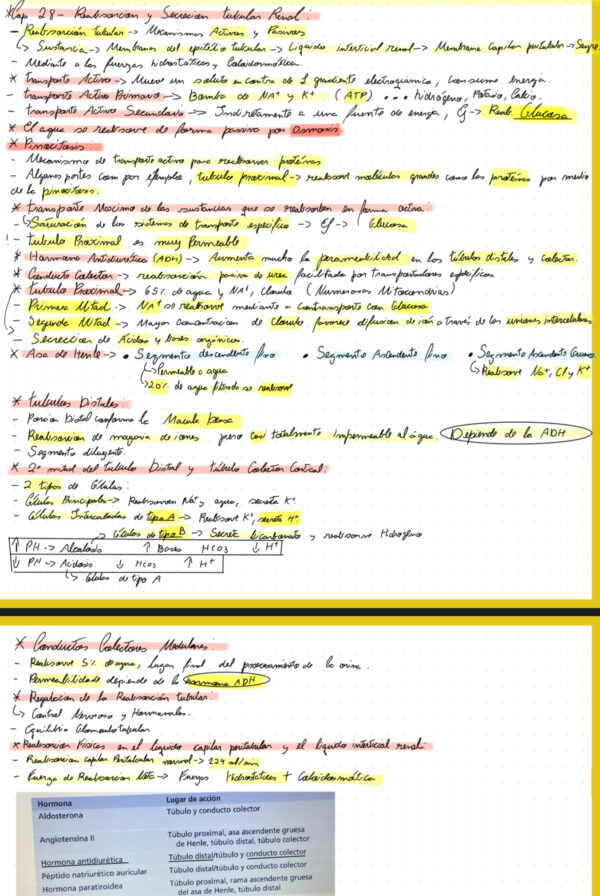 * Cap 28 - Reabsorcion y Secrecion tubulas Renal:
- Reabsorción tubular -> Mecanismos Activos y Pasivos
↳ Sustancia -> Membranas del epitelio tubular -> Liquido intersticial renal -> Membrana Capilar peritubular -> Sangre.
- Mediante a las fuerzas hidrostáticas y Coloidosmótica.
* transporte Activo -> Mueve un soluto en contra de 1 gradiente electroquimico, consume energia.
- transporte Activo Primario -> Bomba de Na+ y K+ (ATP) ... hidrógeno, Potasio, Calcio.
- transporte Activo Secundario -> Indiretamente a una fuente de energia, Ej -> Reab. Glucosa
* El agua se reabsorve de forma pasiva por Osmosis
* Pinocitosis:
- Mecanismo de transporte activo para reabsorver proteinas
- Algunas partes como por ejemplo, tubulo proximal -> reabsorve moléculas grandes como las proteinas por medio
de la pinocitosis.
* transporte Maximo de las sustancias que se reabsorben en forma activa:
- ↳ Saturación de los sistemas de transporte especifico -> Ej -> Glucosa
! - tubulo Proximal es muy Permeable
* Hormona Antidiuretica (ADH) -> Aumenta mucho la permeabilidad en los túbulos distales y colector.
* Conducto Colector -> reabsorción pasiva de urea facilitada por transportadores especificos.
* tubulo Proximal -> 65% de agua y Na+, cloruro (Numerosas Mitocondrias)
- Primera Mitad -> Na+ se reabsorve mediante a contransporte con Glucosa
- Segunda Mitad -> Mayor concentracion de cloruro favorece difusion de ión a través de las uniones intercelulares
- Secreccion de Acidos y bases orgánicas.
* Asa de Henle -> • Segmento descendente fino • Segmento Ascendente fino • Segmento Ascendente Grueso.
↳ Permeable a agua ↳ Reabsorve Na+, Cl y K+
↳ 20% de agua filtrada se reabsorve
* tubulos Distales:
- Porcion Distal conforma la Macula Densa
- Reabsorcion de mayoria de iones pero casi totalmente impermeable al água. Depende de la ADH
- Segmento diluyente.
* 2º mitad del tubulo Distal y túbulo Colector Cortical:
- 2 tipos de Células:
- Células Principales -> Reabsorven Na+ y agua, secreta K+.
- Células Intercaladas de tipo A -> Reabsorve K+, secreta H+.
↳ Células de tipo B -> Secreta bicarbonato y reabsorve Hidrogeno
↑ PH -> Alcalosis ↑ Bases HCO3 ↓ H+
↓ PH -> Acidosis ↓ HCO3 ↑ H+
↳ Células de tipo A
* Conductos Colectores Medulares:
- Reabsorve 5% de agua, lugar final del procesamiento de la orina.
- Permeabilidade depende de la hormona ADH
* Regulacion de la Reabsorción tubular:
↳ Control Nervioso y Hormonales.
- Equilibrio Glomerulotubular
* Reabsorcion Fisicas en el liquido capilar peritubular y el liquido intersticial renal:
- Reabsorcion capilar Peritubular normal -> 124 ml/min
- Fuerza de Reabsorcion Neta -> Fuerzas Hidrostáticas + Coloidosmótica
Hormona Lugar de acción
Aldosterona Túbulo y conducto colector
Angiotensina II Túbulo proximal, asa ascendente gruesa
de Henle, túbulo distal, túbulo colector
Hormona antidiurética Túbulo distal/túbulo y conducto colector
Péptido natriurético auricular Túbulo distal/túbulo y conducto colector
Hormona paratiroidea Túbulo proximal, rama ascendente gruesa
del asa de Henle, túbulo distal